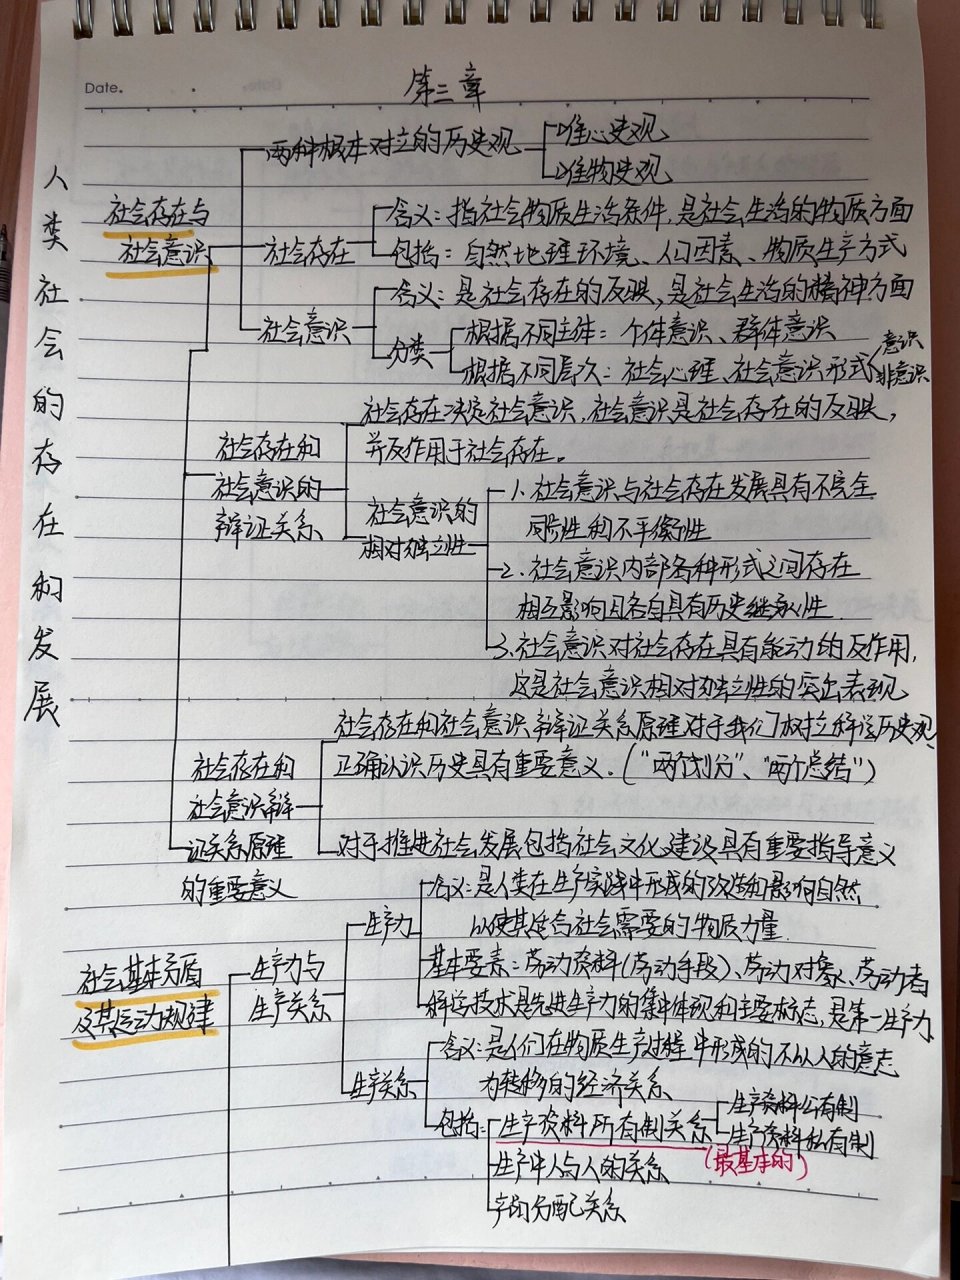 Date.
第三章
人类社会的存在和发展
社会存在与
社会意识
两种根本对立的历史观
唯心史观
唯物史观
社会存在
含义：指社会物质生活条件，是社会生活的物质方面
包括：自然地理环境、人口因素、物质生产方式
社会意识
含义：是社会存在的反映，是社会生活的精神方面
分类
根据不同主体：个体意识、群体意识
根据不同层次：社会心理、社会意识形式
意识
非意识
社会存在和
社会意识的
辩证关系
社会存在决定社会意识，社会意识是社会存在的反映，
并反作用于社会存在。
社会意识的
相对独立性
1.社会意识与社会存在发展具有不完全
同步性和不平衡性
2.社会意识内部各种形式之间存在
相互影响且各自具有历史继承性
3.社会意识对社会存在具有能动的反作用，
这是社会意识相对独立性的突出表现
社会存在和
社会意识辩
证关系原理
的重要意义
社会存在和社会意识辩证关系原理对于我们树立科学历史观、
正确认识历史具有重要意义.（“两个划分”、“两个总结”）
对于推进社会发展包括社会文化建设具有重要指导意义
社会基本矛盾
及其运动规律
生产力与
生产关系
生产力
含义：是人类在生产实践中形成的改造和影响自然
以使其适合社会需要的物质力量
基本要素：劳动资料(劳动手段)、劳动对象、劳动者
科学技术是先进生产力的集中体现和主要标志，是第一生产力
生产关系
含义：是人们在物质生产过程中形成的不以人的意志
为转移的经济关系
包括：
生产资料所有制关系
生产资料公有制
生产资料私有制
(最基本的)
生产中人与人的关系
产品分配关系